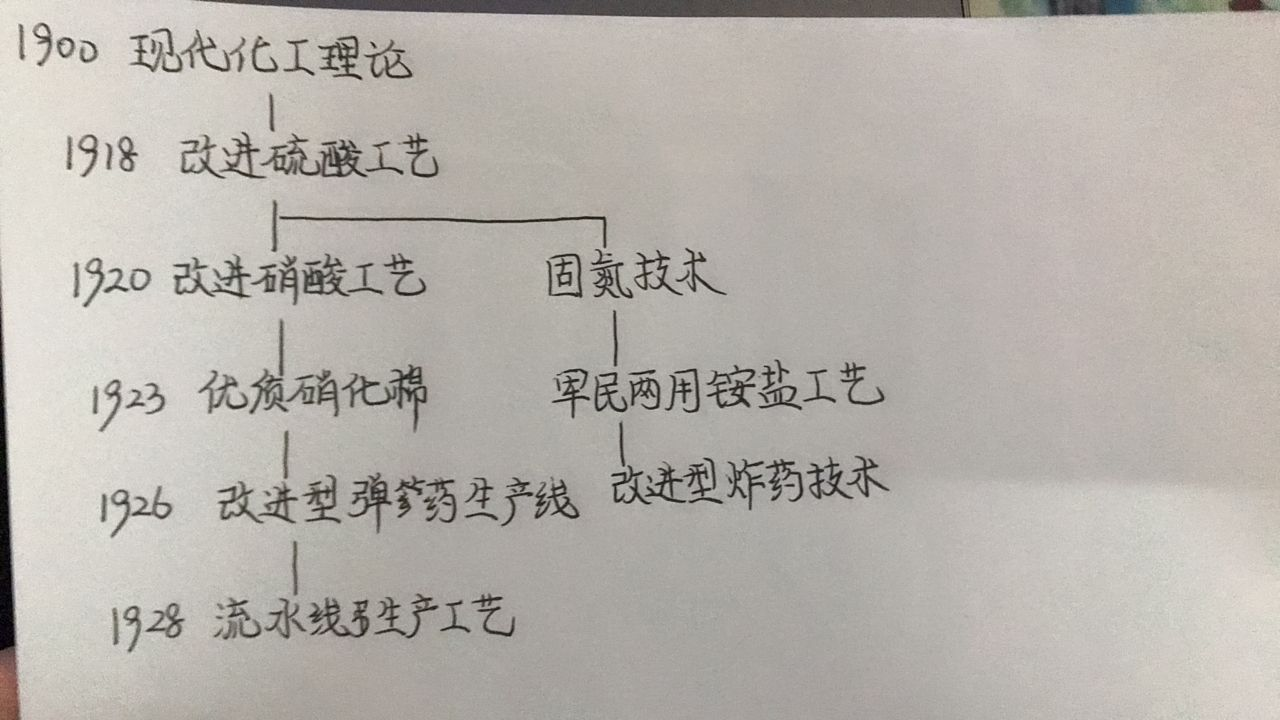 1900 现代化工理论
1918 改进硫酸工艺
1920 改进硝酸工艺 固氮技术
1923 优质硝化棉 军民两用铵盐工艺
1926 改进型弹药生产线 改进型炸药技术
1928 流水线生产工艺